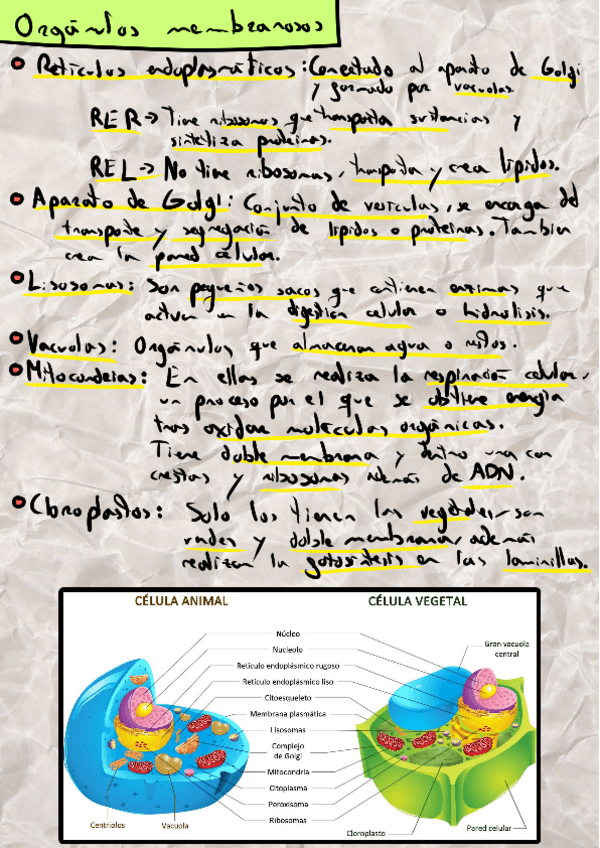 Orgánulos membranosos
Retículos endoplasmáticos: Conectado al aparato de Golgi
y formado por vacuolas.
RER → Tiene ribosomas que transporta sustancias y
sintetiza proteinas.
REL → No tiene ribosomas, transporta y crea lípidos.
Aparato de Golgi: Conjunto de vesiculas, se encarga del
transporte y segregación de lípidos o proteinas. Tambien
crea la pared celular.
Lisosomas: Son pequeños sacos que contienen enzimas que
actuan en la digestión celular o hidrolisis.
Vacuolas: Orgánulos que almacenan agua o
Mitocondrias: En ellas se realiza la respiración celular,
un proceso por el que se obtiene energia
tras oxidar moleculas orgánicas.
Tiene doble membrana y dentro una con
crestas y ribosomas además de ADN.
Cloroplastos: Solo los tienen las vegetales, son
verdes y doble membrana, además
realizan la fotosintesis en las laminillas.
CÉLULA ANIMAL CÉLULA VEGETAL
Núcleo
Nucleolo
Retículo endoplásmico rugoso
Retículo endoplásmico liso
Citoesqueleto
Membrana plasmática
Lisosomas
Complejo
de Golgi
Mitocondria
Citoplasma
Peroxisoma
Ribosomas
Centriolos
Vacuola
Gran vacuola
central
Cloroplasto
Pared celular